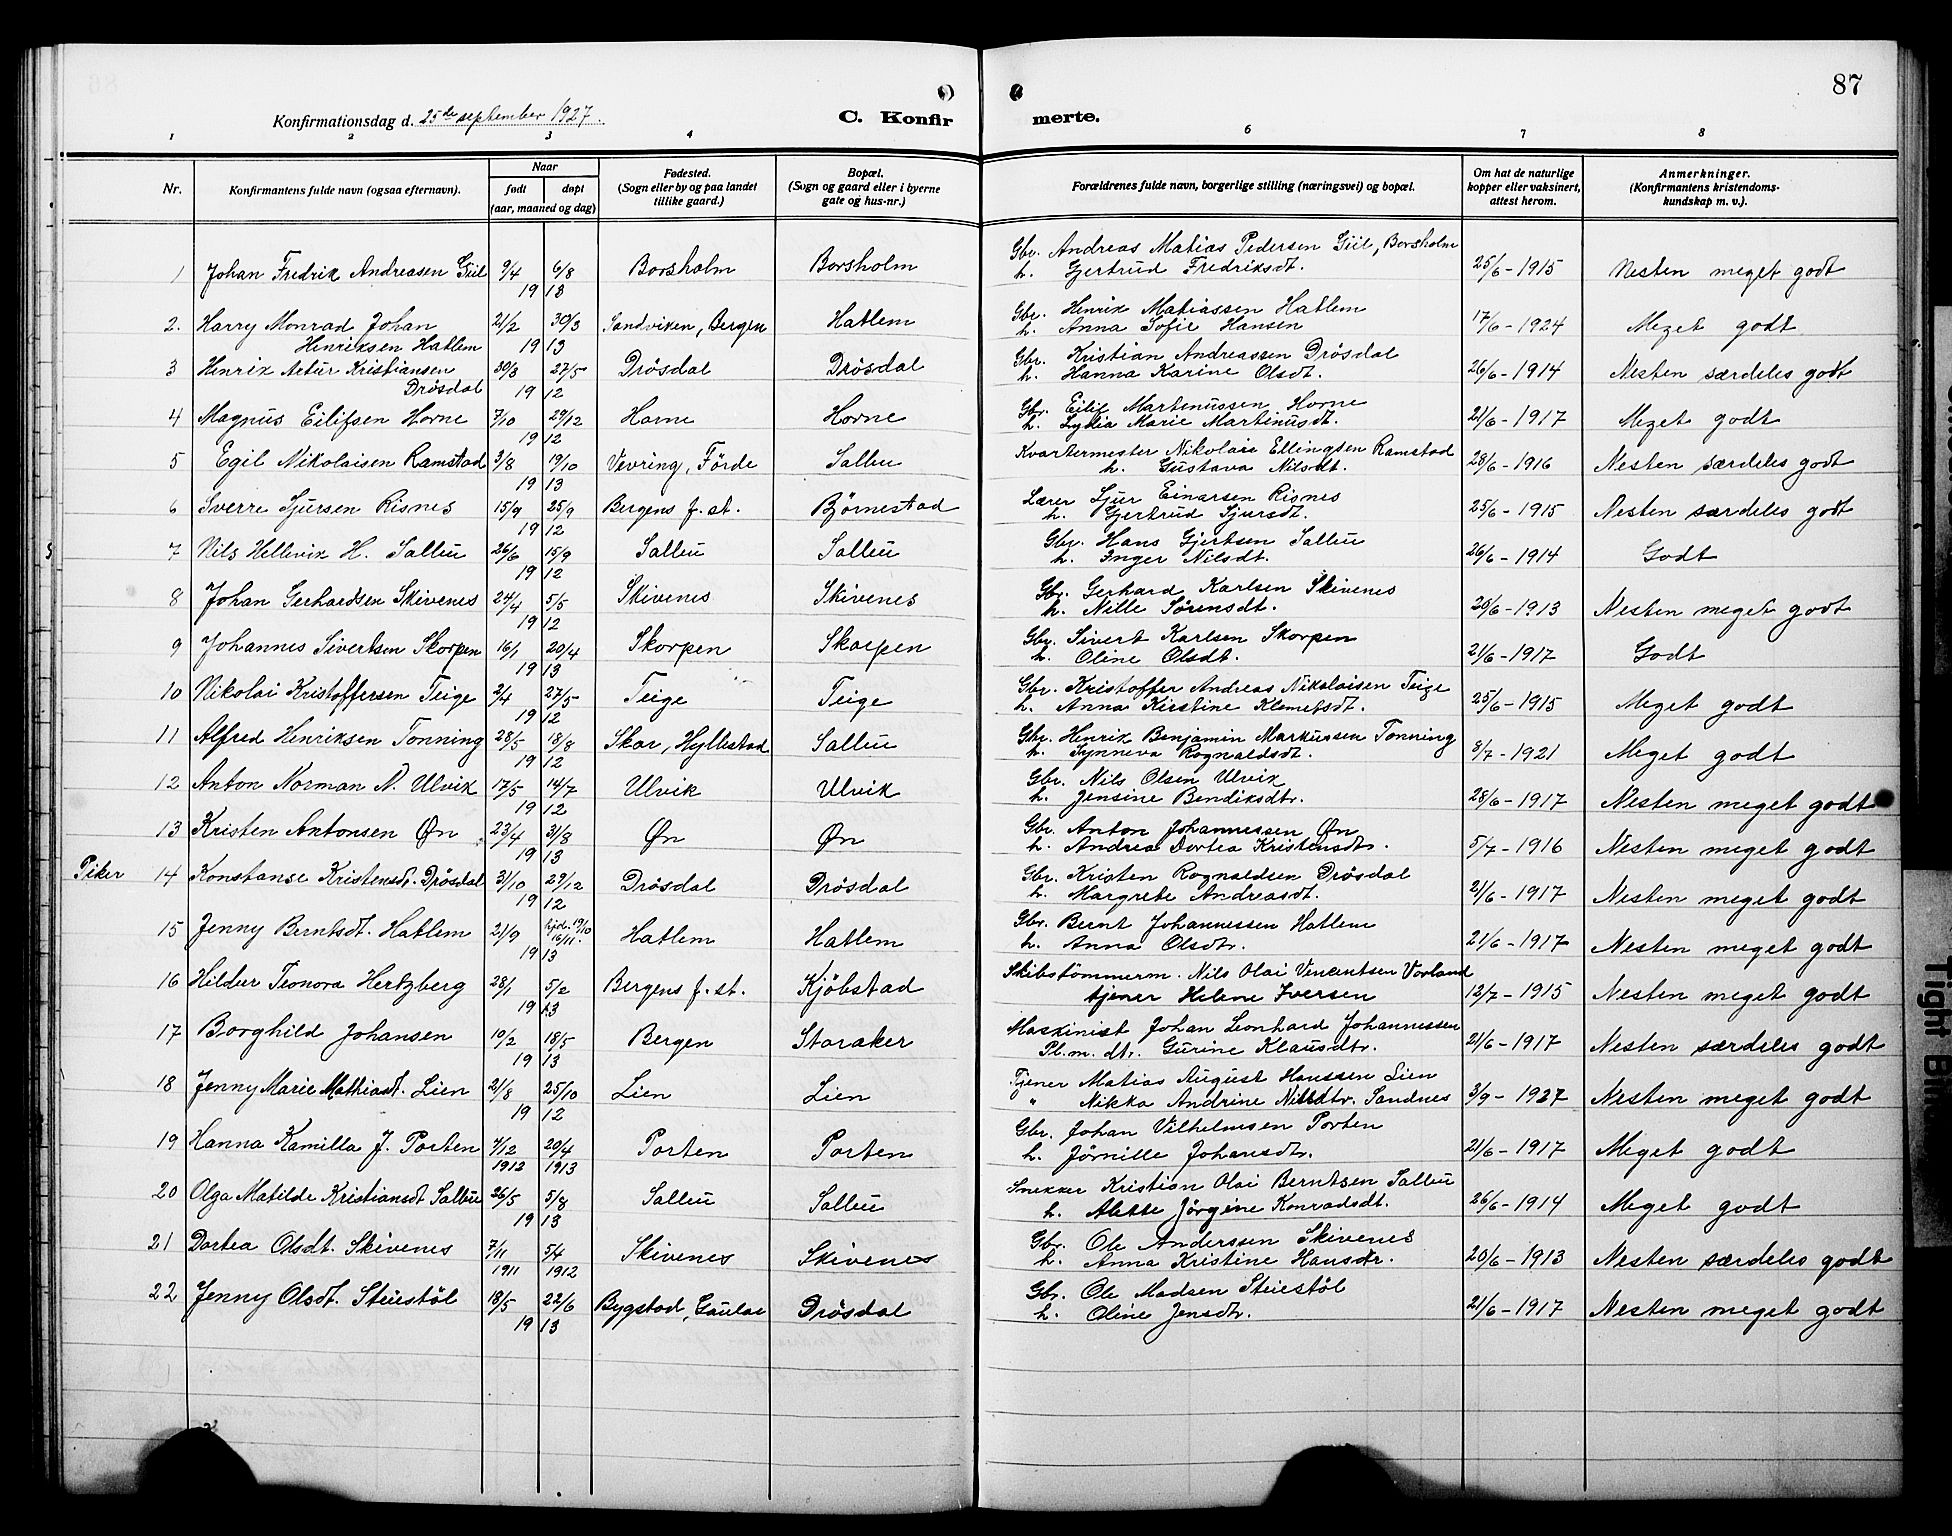 87
Konfirmationsdag d. 25de september 1927.
C. Konfirmerte.
1 2 3 4 5 6 7 8
Nr. Konfirmantens fulde navn (ogsaa efternavn). Naar født døpt (aar, maaned og dag) Fødested. (Sogn eller by og paa landet tillike gaard.) Bopæl. (Sogn og gaard eller i byerne gate og hus-nr.) Forældrenes fulde navn, borgerlige stilling (næringsvei) og bopæl. Om hat de naturlige kopper eller vaksinert, attest herom. Anmerkninger. (Konfirmantens kristendoms-kundskap m. v.).
1 Johan Fredrik Andreasen Giil 9/4 6/8 1913 Borsholm Borsholm Gbr. Andreas Matias Pedersen Giil, Borsholm
h. Gjertrud Fredriksdt. 25/6-1915 Nesten meget godt
2. Harry Monrad Johan Henriksen Hatlem 21/2 30/3 1913 Sandviken, Bergen Hatlem Gbr. Henrik Matiassen Hatlem
h. Anna Sofie Hansen 17/6-1924 Meget godt
3 Henrik Artur Kristiansen Drösdal 30/3 27/5 1912 Drösdal Drösdal Gbr. Kristian Andreassen Drösdal
h. Hanna Karine Olsdt. 26/6-1914 Nesten særdeles godt
4 Magnus Eilifsen Horne 7/10 29/12 1912 Horne Horne Gbr. Eilif Martinussen Horne
h. Lydia Marie Martinusdt. 21/6-1917 Meget godt
5 Egil Nikolaisen Ramstad 3/8 19/10 1913 Vevring, Förde Salbu Kvartermester Nikolai Ellingsen Ramstad
h. Gustava Nilsdt. 28/6-1916 Nesten særdeles godt
6 Sverre Sjursen Risnes 15/9 25/9 1912 Bergens f. st. Björnestad Lærer Sjur Einarsen Risnes
h. Gjertrud Sjursdt. 25/6-1915 Nesten særdeles godt
7 Nils Hellevik H. Salbu 26/6 15/9 1912 Salbu Salbu Gbr. Hans Gjertsen Salbu
h. Inger Nilsdt. 26/6-1914 Godt
8 Johan Gerhardsen Skivenes 24/4 5/5 1912 Skivenes Skivenes Gbr. Gerhard Karlsen Skivenes
h. Nille Sörensdt. 20/6-1913 Nesten meget godt
9 Johannes Sivertsen Skorpen 16/1 20/4 1913 Skorpen Skorpen Gbr. Sivert Karlsen Skorpen
h. Oline Olsdt. 21/6-1917 Godt
10 Nikolai Kristoffersen Teige 2/4 27/5 1912 Teige Teige Gbr. Kristoffer Andreas Nikolaisen Teige
h. Anna Kirstine Klemetsdt. 25/6-1915 Meget godt
11 Alfred Henriksen Tonning 28/5 18/8 1912 Skor, Hyllestad Salbu Gbr. Henrik Benjamin Markussen Tonning
h. Synneva Rognaldsdt. 8/7-1921 Meget godt
12 Anton Norman N. Ulvik 17/5 14/7 1912 Ulvik Ulvik Gbr. Nils Olsen Ulvik
h. Jensine Bendiksdtr. 28/6-1917 Nesten meget godt
13 Kristen Antonsen Øn 23/4 31/8 1913 Øn Øn Gbr. Anton Johannessen Øn
h. Andrea Dortea Kristensdtr. 5/7-1916 Nesten meget godt
Piker 14 Konstanse Kristensdt. Drösdal 31/10 29/12 1912 Drösdal Drösdal Gbr. Kristen Rognaldsen Drösdal
h. Margrete Andreasdt. 21/6-1917 Nesten meget godt
15 Jenny Berntsdt. Hatlem 21/9 hjd. 19/10 16/11. 1913 Hatlem Hatlem Gbr. Bernt Johannessen Hatlem
h. Anna Olsdtr. 21/6-1917 Nesten meget godt
16 Hildur Teonora Hertzberg 28/1 5/2 1913 Bergens f. st. Kjöbstad Skibstömmerm. Nils Olai Vincentsen Vorland
tjener Helene Iversen 12/7-1915 Nesten meget godt
17 Borghild Johansen 10/2 18/5 1913 Bergen Storaker Maskinist Johan Leonhard Johannessen
Pl.m. dtr. Gurine Klausdtr. 21/6-1917 Nesten særdeles godt
18 Jenny Marie Mathiasdt. Lien 21/8 25/10 1912 Lien Lien Tjener Matias August Hanssen Lien
" Nikka Andrine Nilsdtr. Sandnes 3/9-1927 Nesten meget godt
19 Hanna Kamilla J. Porten 7/12 1912 20/4 1913 Porten Porten Gbr. Johan Vilhelmsen Porten
h. Jörnille Johansdtr. 21/6-1917 Meget godt
20 Olga Matilde Kristiansdt Salbu 26/5 5/8 1913 Salbu Salbu Snekker Kristian Olai Berntsen Salbu
h. Alette Jörgine Konradsdt. 26/6-1914 Meget godt
21 Dortea Olsdt. Skivenes 7/11 1911 5/4 1912 Skivenes Skivenes Gbr. Ole Anderssen Skivenes
h. Anna Kristine Hansdtr. 20/6-1913 Nesten særdeles godt
22 Jenny Olsdt. Steiestöl 18/5 22/6 1913 Bygstad, Gaular Drösdal Gbr. Ole Madsen Steiestöl
h. Oline Jensdtr. 21/6-1917 Nesten meget godt